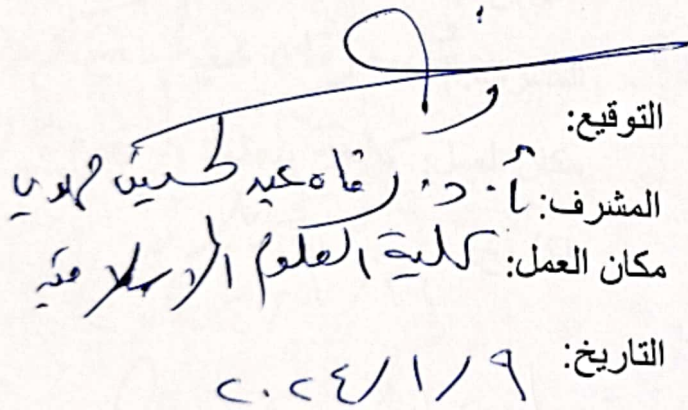 التوقيع:
المشرف: أ.د. رفاه عبد الحسين مهدي
مكان العمل: كلية العلوم الاسلامية
التاريخ: ٩/١/٢٠٢٤